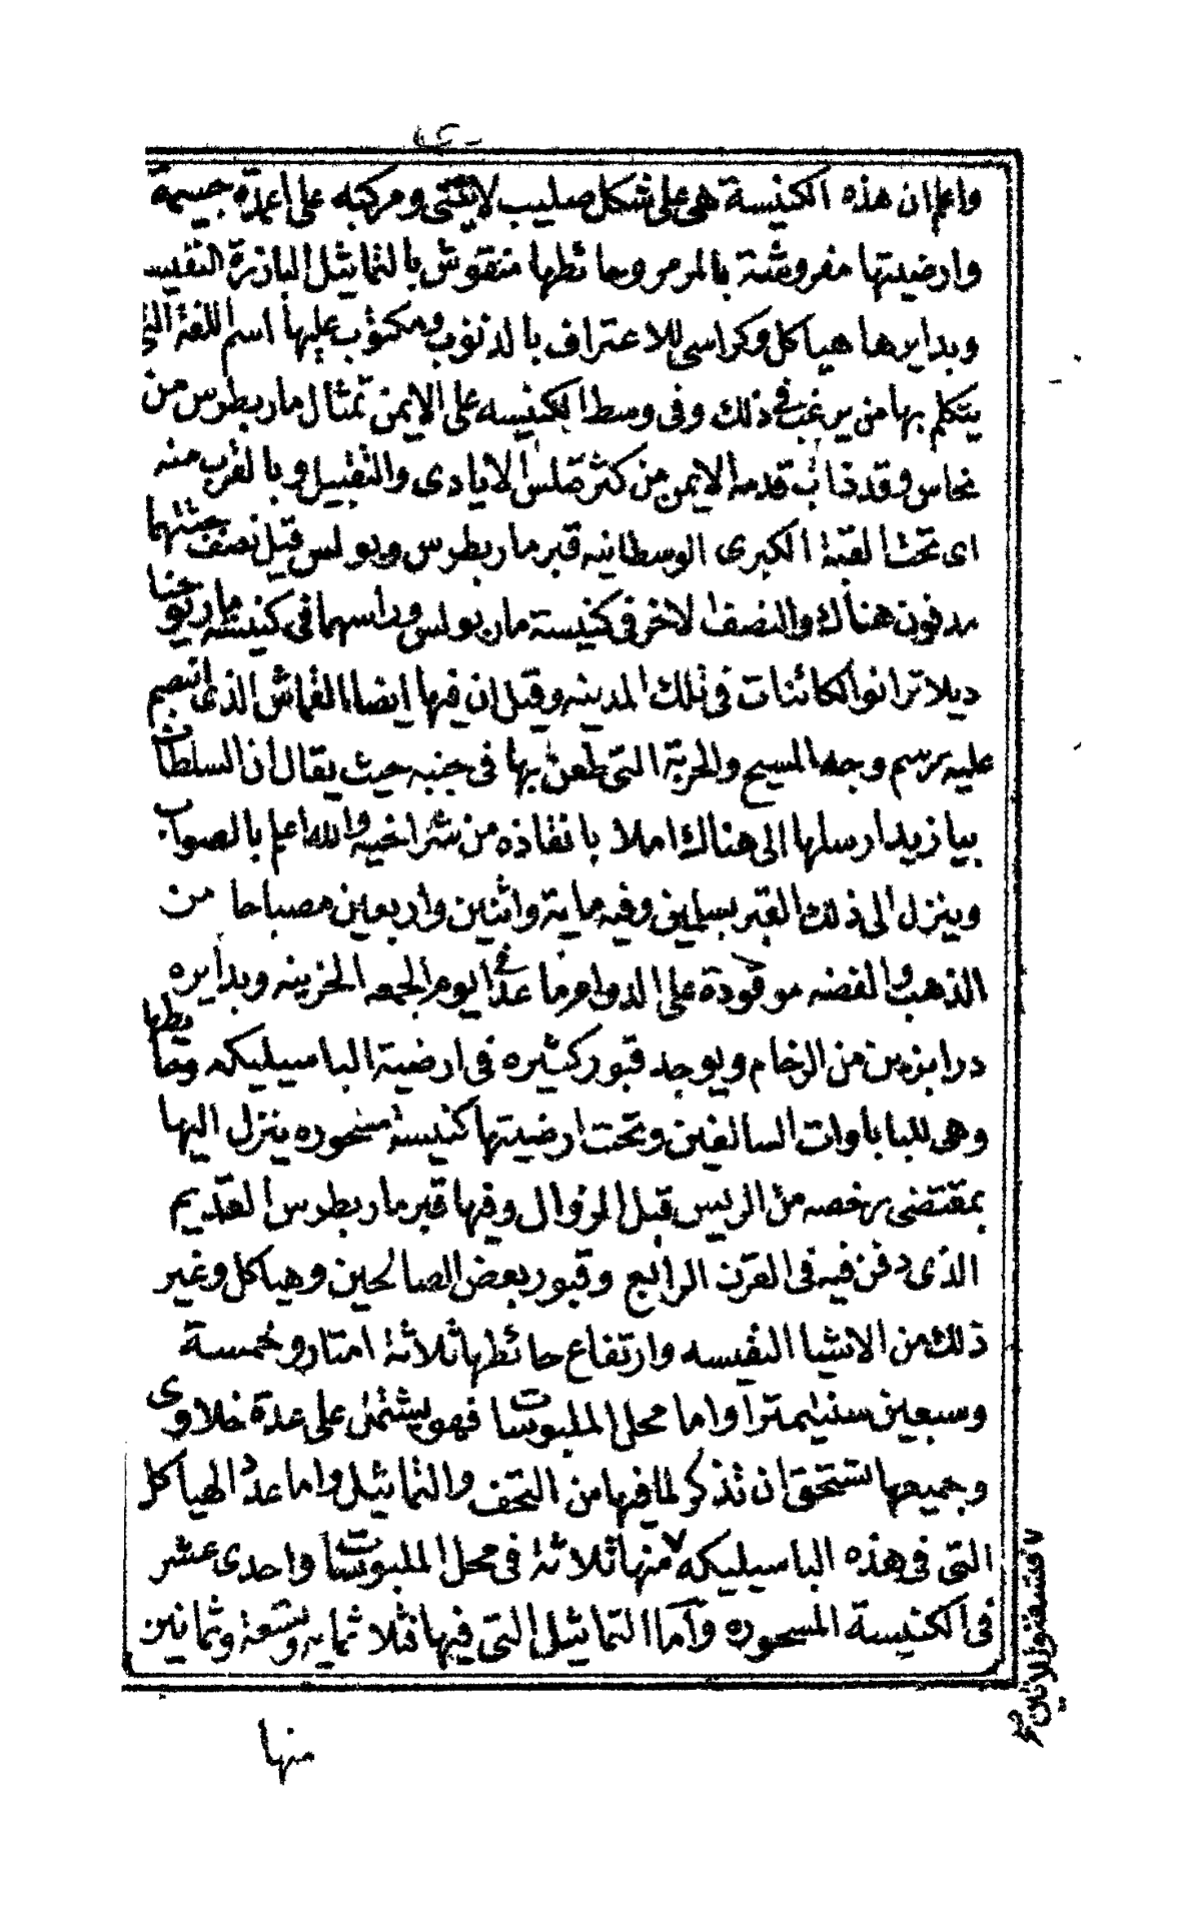 واعلم ان هذه الكنيسة هى على شكل صليب لاتينى ومركبه على اعمدة جسيمة
وارضيتها مفروشة بالمرمر وحائطها منقوش بالتماثيل البارزة النفيسه
وبدايرها هياكل وكراسى للاعتراف بالذنوب ومكتوب عليها اسم اللغة التى
يتكلم بها من يرغب فى ذلك وفى وسط الكنيسه على الايمن تمثال مار بطرس من
نحاس وقد ذاب قدمه الايمن من كثر تلمس الايادى والتقبيل وبالقرب منه
اى تحت القبة الكبرى الوسطانيه قبر مار بطرس وبولس قيل نصف جثتهما
مدفون هناك والنصف الاخر فى كنيسة مار بولس وراسهما فى كنيسة مار يوحنا
ديلاترانو الكائنات فى تلك المدينه وقيل ان فيها ايضا القماش الذى انبصم
عليه برسم وجه المسيح والحربة التى طعن بها فى جنبه حيث يقال ان السلطان
بيازيد ارسلها الى هناك املا بانقاذه من شر اخيه والله اعلم بالصواب
وينزل الى ذلك القبر بسلمين وفيه ماية واثنين واربعين مصباحا من
الذهب والفضه موقودة على الدوام ما عدا يوم الجمعه الحزينه وبدايره
درابزين من الرخام ويوجد قبور كثيره فى ارضية الباسيليكه وحايطها
وهى للباباوات السالفين وتحت ارضيتها كنيسة مسحوره ينزل اليها
بمقتضى رخصه من الريس قبل الزوال وفيها قبر مار بطرس القديم
الذى دفن فيه فى القرن الرابع وقبور بعض الصالحين وهياكل وغير
ذلك من الاشيا النفيسه وارتفاع حائطها ثلاثة امتار وخمسة
وسبعين سنتيمترا واما محل الملبوسات فهو يشتمل على عدة خلاوى
وجميعها تستحق ان تذكر لما فيها من التحف والتماثيل واما عدد الهياكل
التى فى هذه الباسيليكه منها ثلاثة فى محل الملبوسات واحدى عشر
فى الكنيسة المسحوره واما التماثيل التى فيها فثلاثمايه وتسعة وثمانين
منها